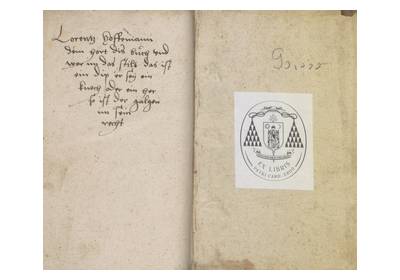 Lorentz Hoffemann
dem hort dis buch vnd
wer im das stilt das ist
ein dip er sey ein
knech oder ein her
so ist der galgen
im sein
recht
EX LIBRIS
PETRI CARD. ERDŐ